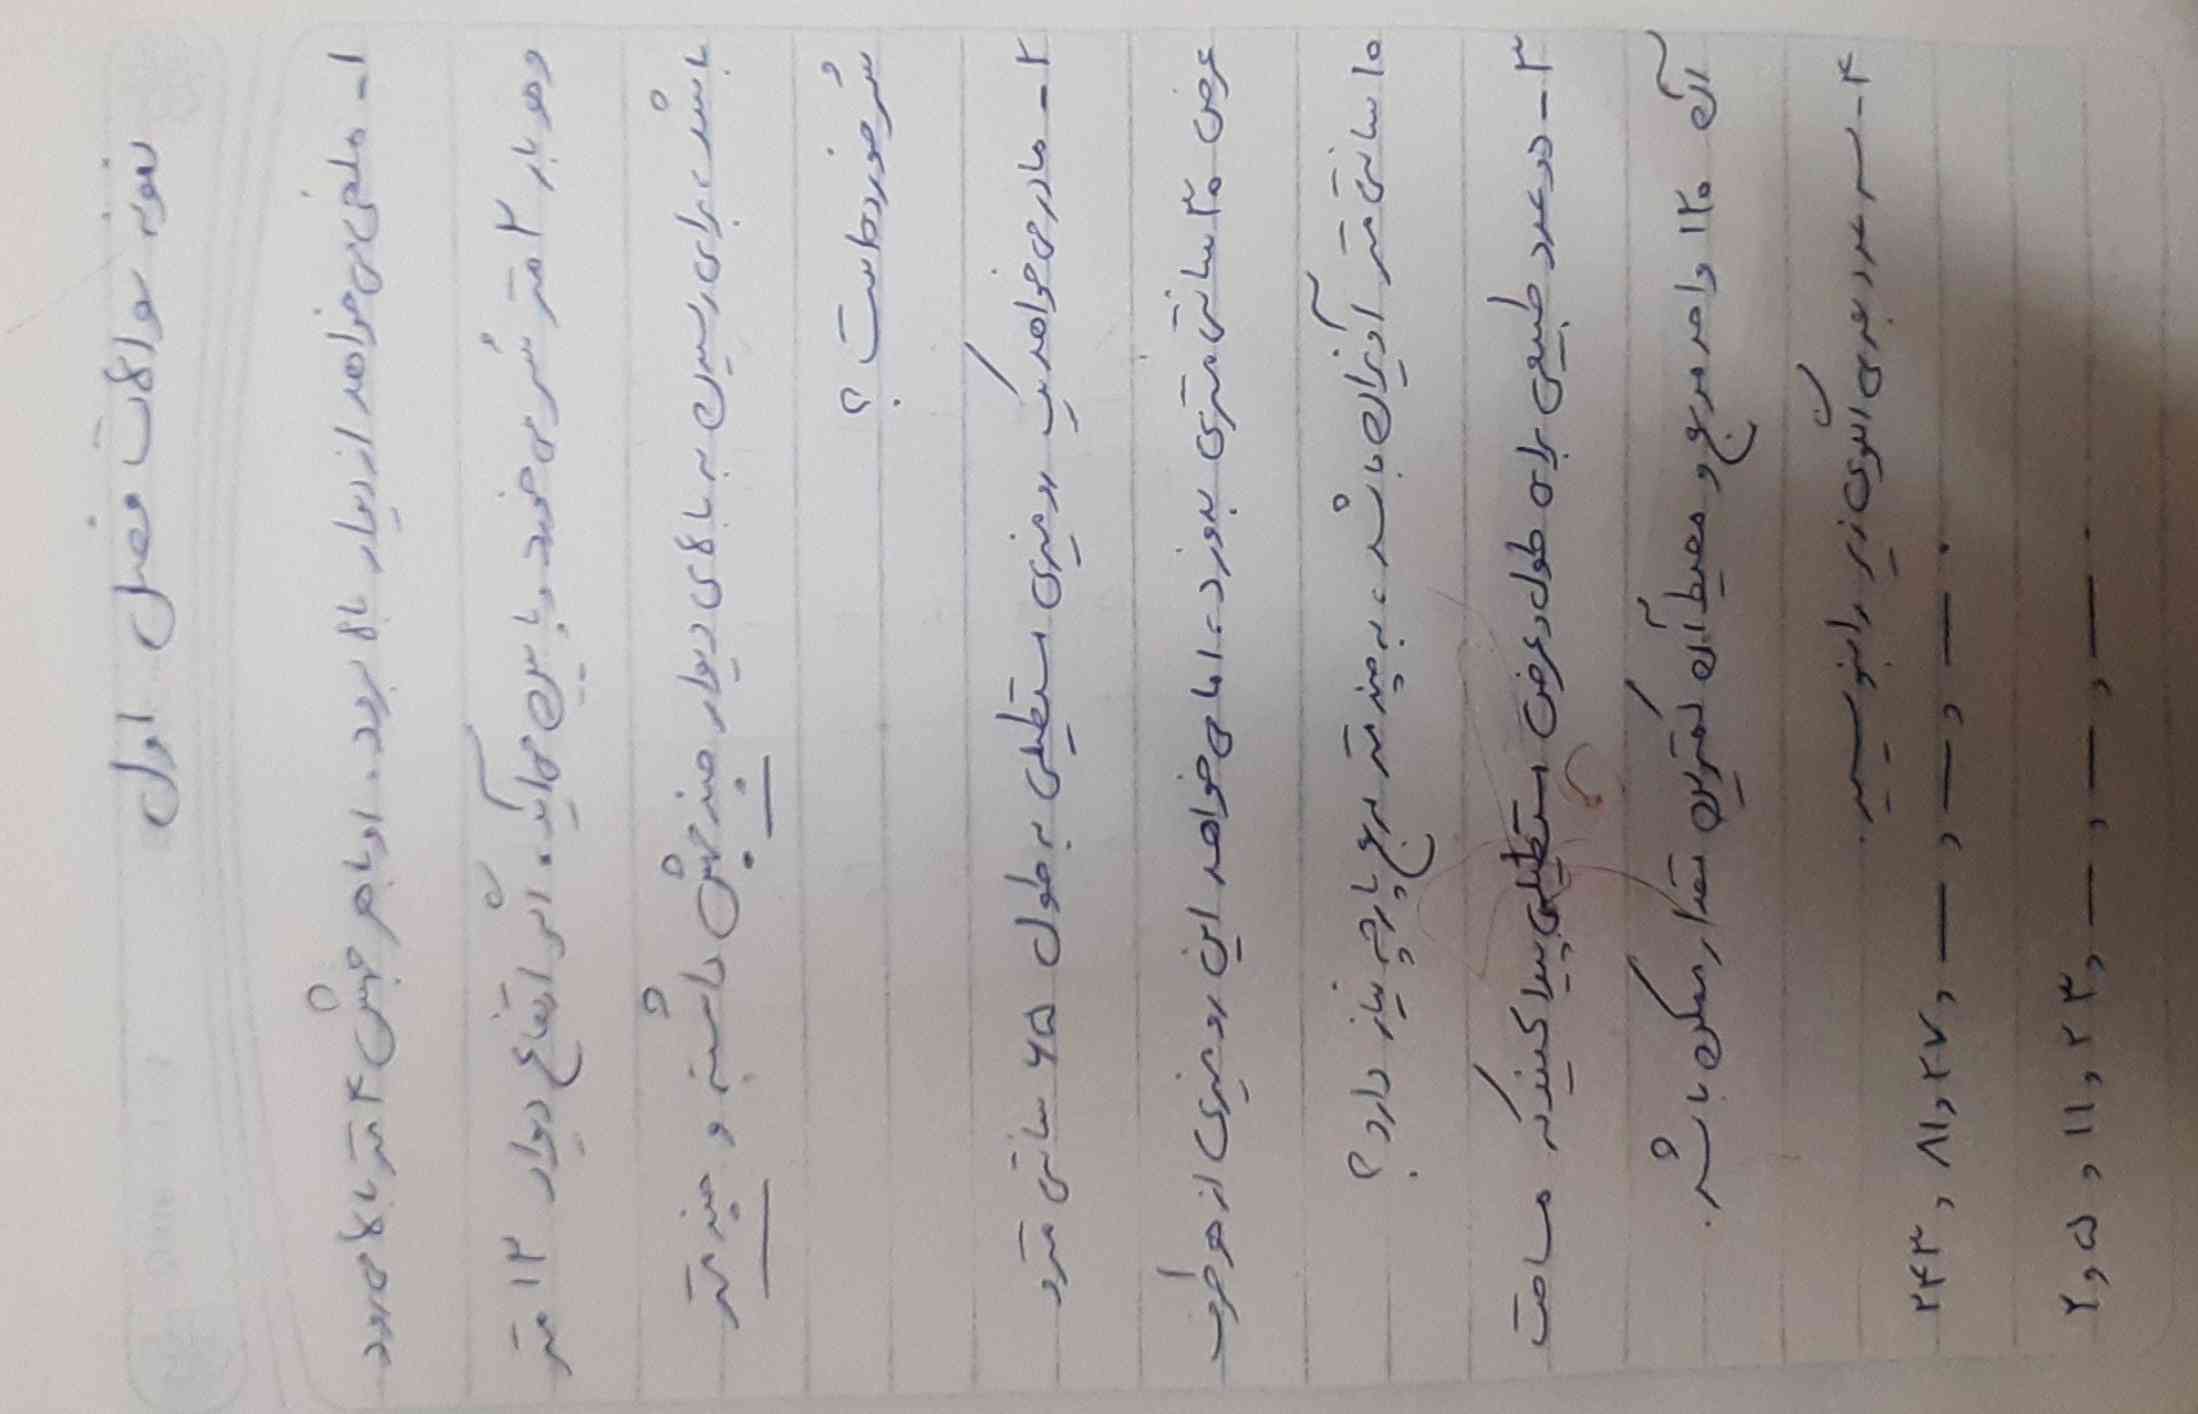 نمونه سوالات فصل اول
۱- ملخی می خواهد از دیوار بالا برود. او با هر جهش ۴ متر بالا می رود
و هر بار ۲ متر سُر می خورد و پایین می آید. اگر ارتفاع دیوار ۱۲ متر
باشد، برای رسیدن به بالای دیوار چند جهش داشته و چند متر
سُر خورده است؟
۲- مادر می خواهد یک رومیزی مستطیلی به طول ۶۵ سانتی متر و
عرض ۳۰ سانتی متری بدوزد، اما می خواهد این رومیزی از هر طرف
۱۵ سانتی متر آویزان باشد، به چند متر مربع پارچه نیاز دارد؟
۳- دو عدد طبیعی برای طول و عرض مستطیلی پیدا کنید که مساحت
آن ۱۲۰ واحد مربع و محیط آن کمترین مقدار ممکن باشد.
۴- سه عدد بعدی الگوی زیر را بنویسید.
۲۴۳, ۸۱, ۲۷, —, —, —.
۲, ۵, ۱۱, ۲۳, —, —, —.